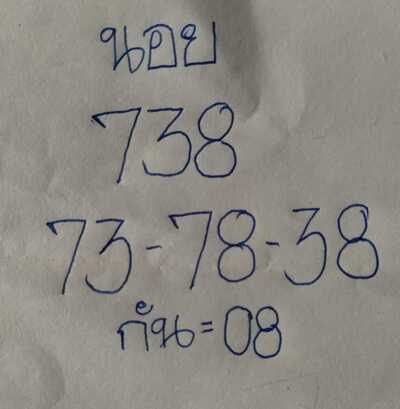 นอย
738
73-78-38
กัน=08